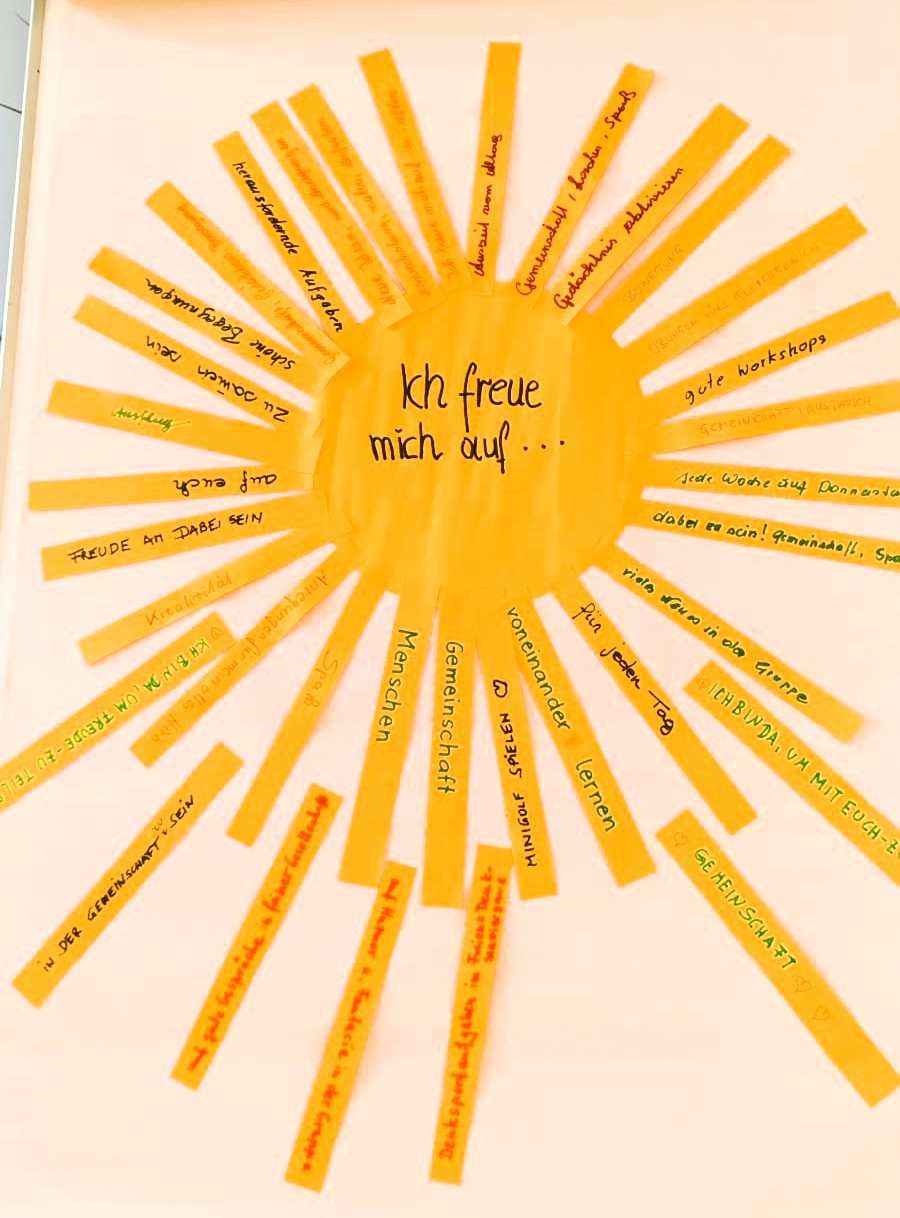 Ich freue
mich auf...
Auszeit vom Alltag
Gemeinschaft, Lachen, Spaß
Gedächtnis aktivieren
BEWEGUNG
gute Workshops
GEMEINSCHAFT / AUSTAUSCH
jede Woche auf
dabei zu sein! Gemeinschaft,
vieles Neues in der Gruppe
ICH BIN DA, UM MIT EUCH
für jeden Tag
GEMEINSCHAFT
voneinander lernen
MINIGOLF SPIELEN
Gemeinschaft
Menschen
Denksportaufgaben im
Auf Humor u. Fantasie in der Gruppe
Spaß
auf gute Gespräche in feiner Gesellschaft
Anregungen für mein
IN DER GEMEINSCHAFT ZU SEIN
ICH BIN DA, UM FREUDE ZU
Kreativität
FREUDE AM DABEI SEIN
auf euch
Ausflug
Zu sein
schöne Begegnungen
herausfordernde Aufgaben
neue Ideen, und